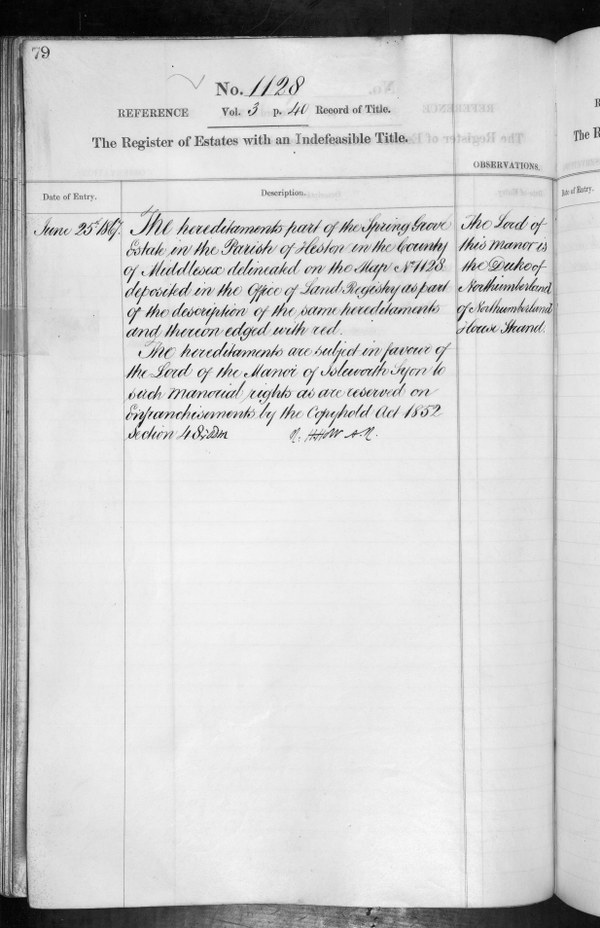 79
No. 1128
REFERENCE Vol. 3 p. 40 Record of Title.
The Register of Estates with an Indefeasible Title.
OBSERVATIONS.
Date of Entry.
Description.
June 25th 1867.
The hereditaments part of the Spring Grove
Estate in the Parish of Heston in the County
of Middlesex delineated on the Map No 1128
deposited in the Office of Land Registry as part
of the description of the same hereditaments
and thereon edged with red.
The hereditaments are subject in favour of
the Lord of the Manor of Isleworth Syon to
such manorial rights as are reserved on
Enfranchisements by the Copyhold Act 1852
Section 48
The Lord of
this Manor is
the Duke of
Northumberland
of Northumberland
House Strand.
Date of Entry.